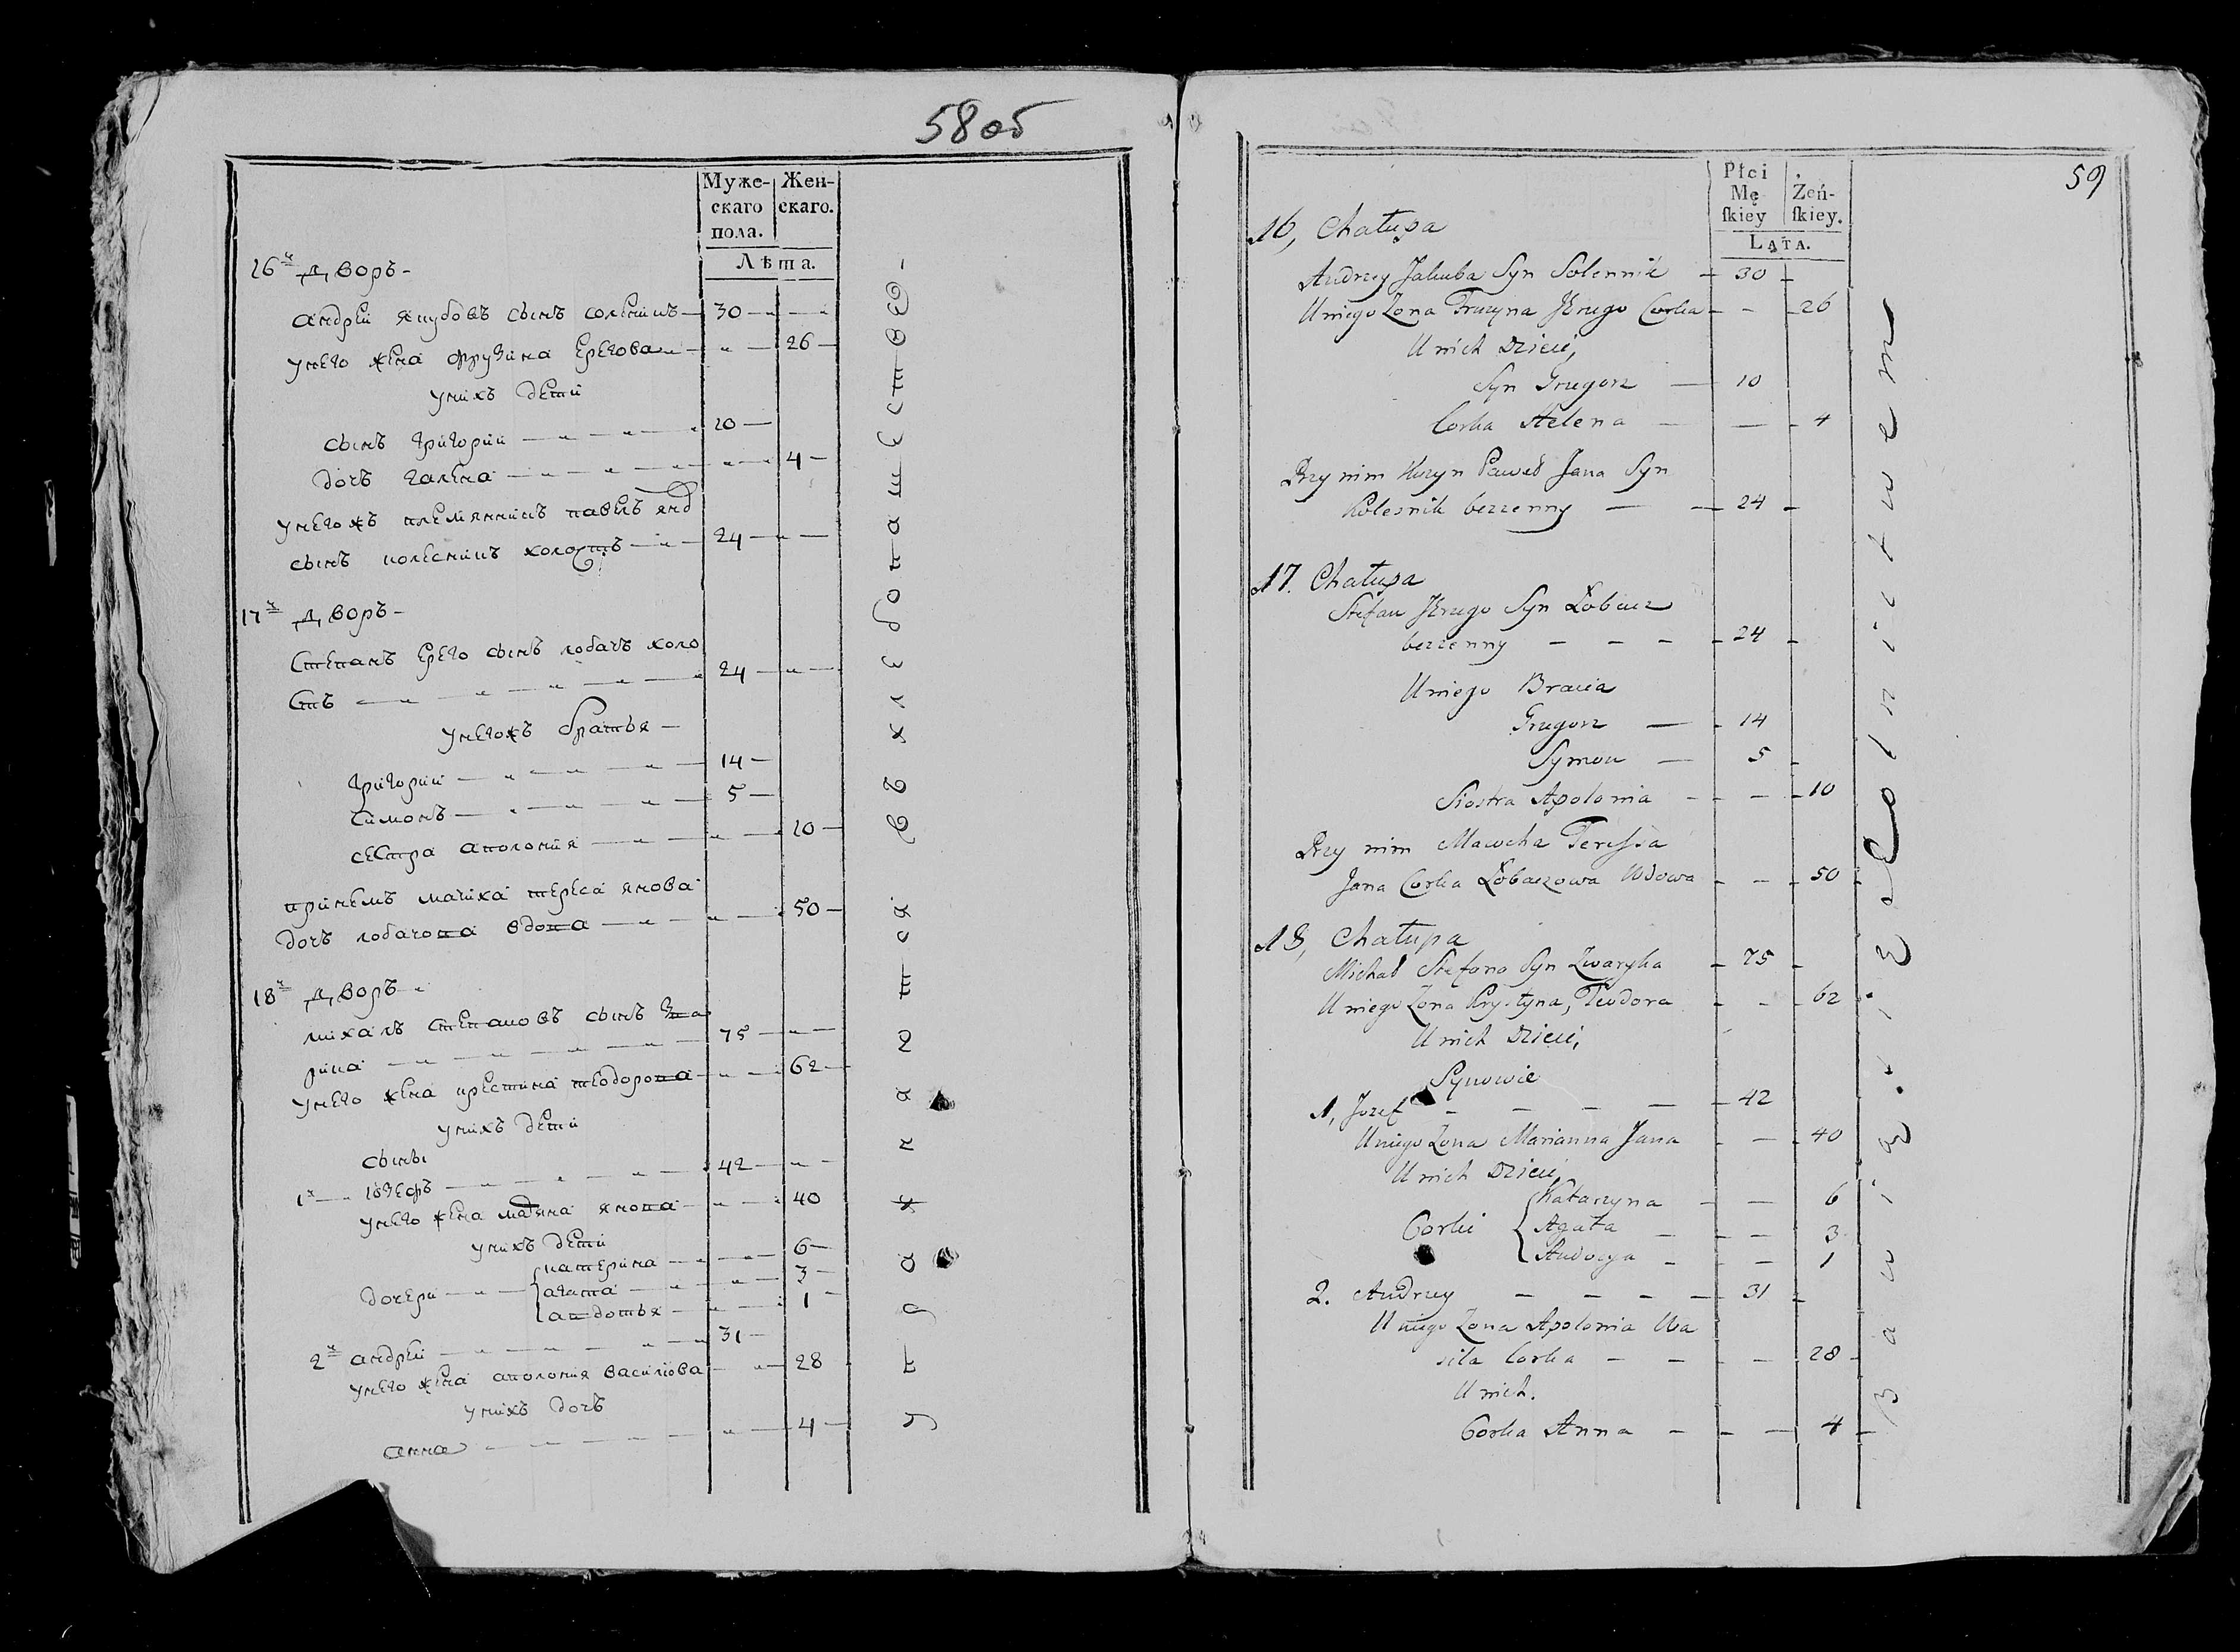 58об
Муже-
скаго
пола.
Жен-
скаго.
Лѣта.
16й дворъ -
андрей якубовъ сынъ сольникъ 30
у него жена фрузина ерегова 26
у нихъ дети
сынъ григорий 10
дочъ галена 4
у него жъ племянникъ павелъ янов
сынъ колесникъ холостъ 24
17й дворъ -
степанъ ерего сынъ лобачъ холо
стъ 24
у него жъ братья -
григорий 14
симонъ 5
сестра аполония 10
при немъ мачиха тереса янова
дочъ лобачова вдова 50
18й дворъ -
михалъ степановъ сынъ зва
рика 75
у него жена крестина теодорова 62
у нихъ дети
сыны
1й юзефъ 42
у него жена марьяна янова 40
у нихъ дети
дочери
катерина 6
агата 3
авдотья 1
2й андрей 31
у него жена аполония василіова 28
у нихъ дочъ
анна 4
упражняется въ хлебопашестве -
59
Płci
Mę
ſkiey
Żeń-
ſkiey.
LATA.
16, Chałupa
Andrzey Jakuba Syn Solennik - 30 -
U niego Zona Fruzyna Jerzego Corka - - - 26
U nich Dzieci,
Syn Grzegorz — 10
Corka Helena — — - 4
Przy nim Kuzyn Paweł Jana Syn
Kolesnik bezzenny — — 24 -
17. Chałupa
Stefan Jerzego Syn Łobacz
bezzenny - - - - 24 -
U niego Bracia
Grzegorz — - 14
Symon — 5 -
Siostra Apolonia - - - - 10
Przy nim Macocha Teressa
Jana Corka Łobaczowa Wdowa - - - 50 -
18, Chałupa
Michał Stefana Syn Zwaryka - 75 -
U niego Zona Krystyna, Teodora - - - 62
U nich Dzieci,
Synowie
1, Jozef - - - — - 42
U niego Zona Marianna Jana - — - 40
U nich Dzieci,
Corki
Katarzyna - — 6
Agata - - — 3
Audocya - - — 1
2. Andrzey - - - — 31 -
U niego Zona Apolonia Wa
sila Corka - - - — 28 -
U nich.
Corka Anna - - — 4 -
Bawią się Rolnictwem